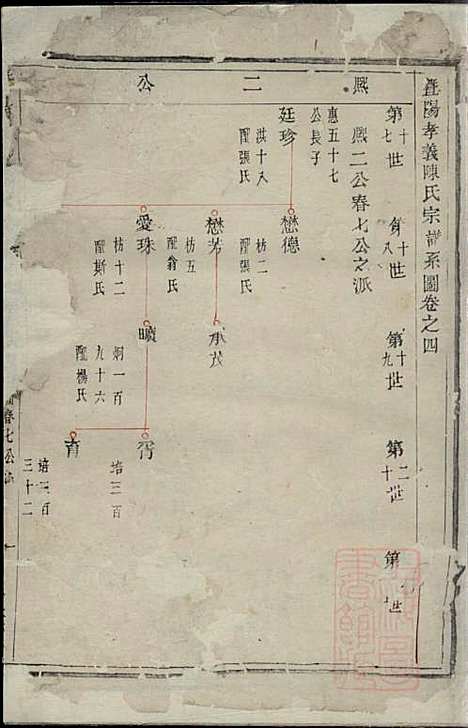 暨陽孝義陳氏宗譜系圖卷之四
熙二公
第十七世
第十八世
第十九世
第二十世
第
世
熙二公春七公之派
惠五十七
公長子
廷珍
洪十八
配張氏
懋德
枋二
配張氏
懋芳
枋五
配翁氏
承茂
愛珠
枋十二
配斯氏
曠
炯一百
九十六
配楊氏
胥
培三百
育
培三百
三十二
春七公派